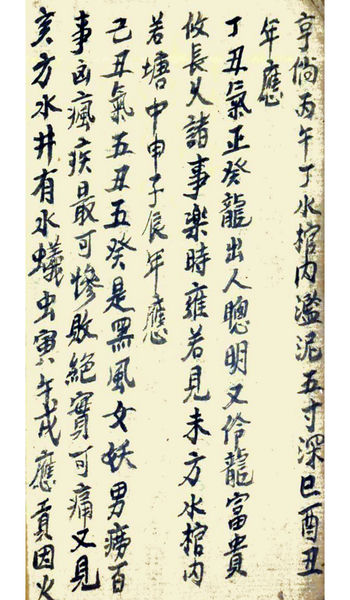 亨倘丙午丁水棺内濫泥五寸深巳酉丑
年應
丁丑氣正癸龍出人聰明又伶龍富貴
攸長久諸事樂時雍若見未方水棺内
若塘中申子辰年應
己丑氣五丑五癸是黑風女妖男癆百
事凶瘋疾最可慘敗絕實可痛又見
亥方水井有水蟻虫寅午戌應貢因火